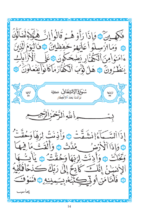 فَكِهِينَ وَإِذَا رَأَوْهُمْ قَالُوٓا۟ إِنَّ هَٰٓؤُلَآءِ لَضَآلُّونَ
وَمَآ أُرْسِلُوا۟ عَلَيْهِمْ حَٰفِظِينَ فَٱلْيَوْمَ ٱلَّذِينَ
ءَامَنُوا۟ مِنَ ٱلْكُفَّارِ يَضْحَكُونَ عَلَى ٱلْأَرَآئِكِ
يَنظُرُونَ هَلْ ثُوِّبَ ٱلْكُفَّارُ مَا كَانُوا۟ يَفْعَلُونَ
سُورَةُ الانشِقَاقِ
بِسْمِ ٱللَّهِ ٱلرَّحْمَٰنِ ٱلرَّحِيمِ
إِذَا ٱلسَّمَآءُ ٱنشَقَّتْ وَأَذِنَتْ لِرَبِّهَا وَحُقَّتْ
وَإِذَا ٱلْأَرْضُ مُدَّتْ وَأَلْقَتْ مَا فِيهَا
وَتَخَلَّتْ وَأَذِنَتْ لِرَبِّهَا وَحُقَّتْ يَٰٓأَيُّهَا
ٱلْإِنسَٰنُ إِنَّكَ كَادِحٌ إِلَىٰ رَبِّكَ كَدْحًا فَمُلَٰقِيهِ
فَأَمَّا مَنْ أُوتِىَ كِتَٰبَهُۥ بِيَمِينِهِۦ فَسَوْفَ